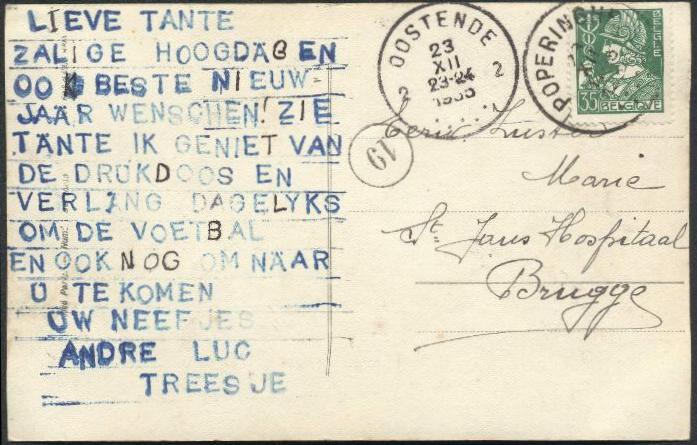 LIEVE TANTE
ZALIGE HOOGDAGEN
OOK BESTE NIEUW-
JAAR WENSCHEN! ZIE
TANTE IK GENIET VAN
DE DRUKDOOS EN
VERLANG DAGELYKS
OM DE VOETBAL
EN OOK NOG OM NAAR
U TE KOMEN
UW NEEFJES
ANDRE LUC
TREESJE
OOSTENDE
23
XII
23-24
1935
2 2
19
POPERINGHE
BELGIE
35 BELGIQUE
Eerw. Zuster
Marie
St. Jans Hospitaal
Brugge